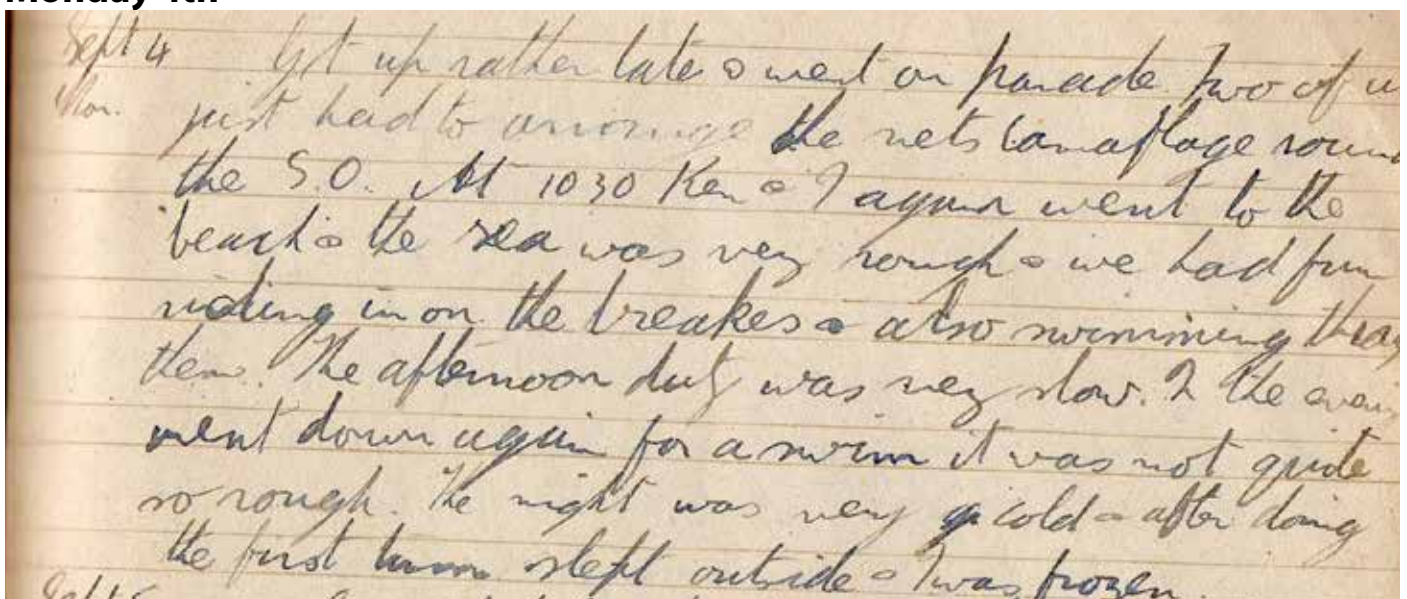 Monday 4th
Sept 4 Got up rather late & went on parade. Two of us
Mon. just had to arrange the nets camaflage round
the S.O. At 1030 Ken & I again went to the
beach & the sea was very rough & we had fun
riding in on the breakes & also swimming
them. The afternoon duty was very slow. I the
went down again for a swim it was not quite
so rough. The night was very cold & after doing
the first slept outside & I was frozen.
Sept 5